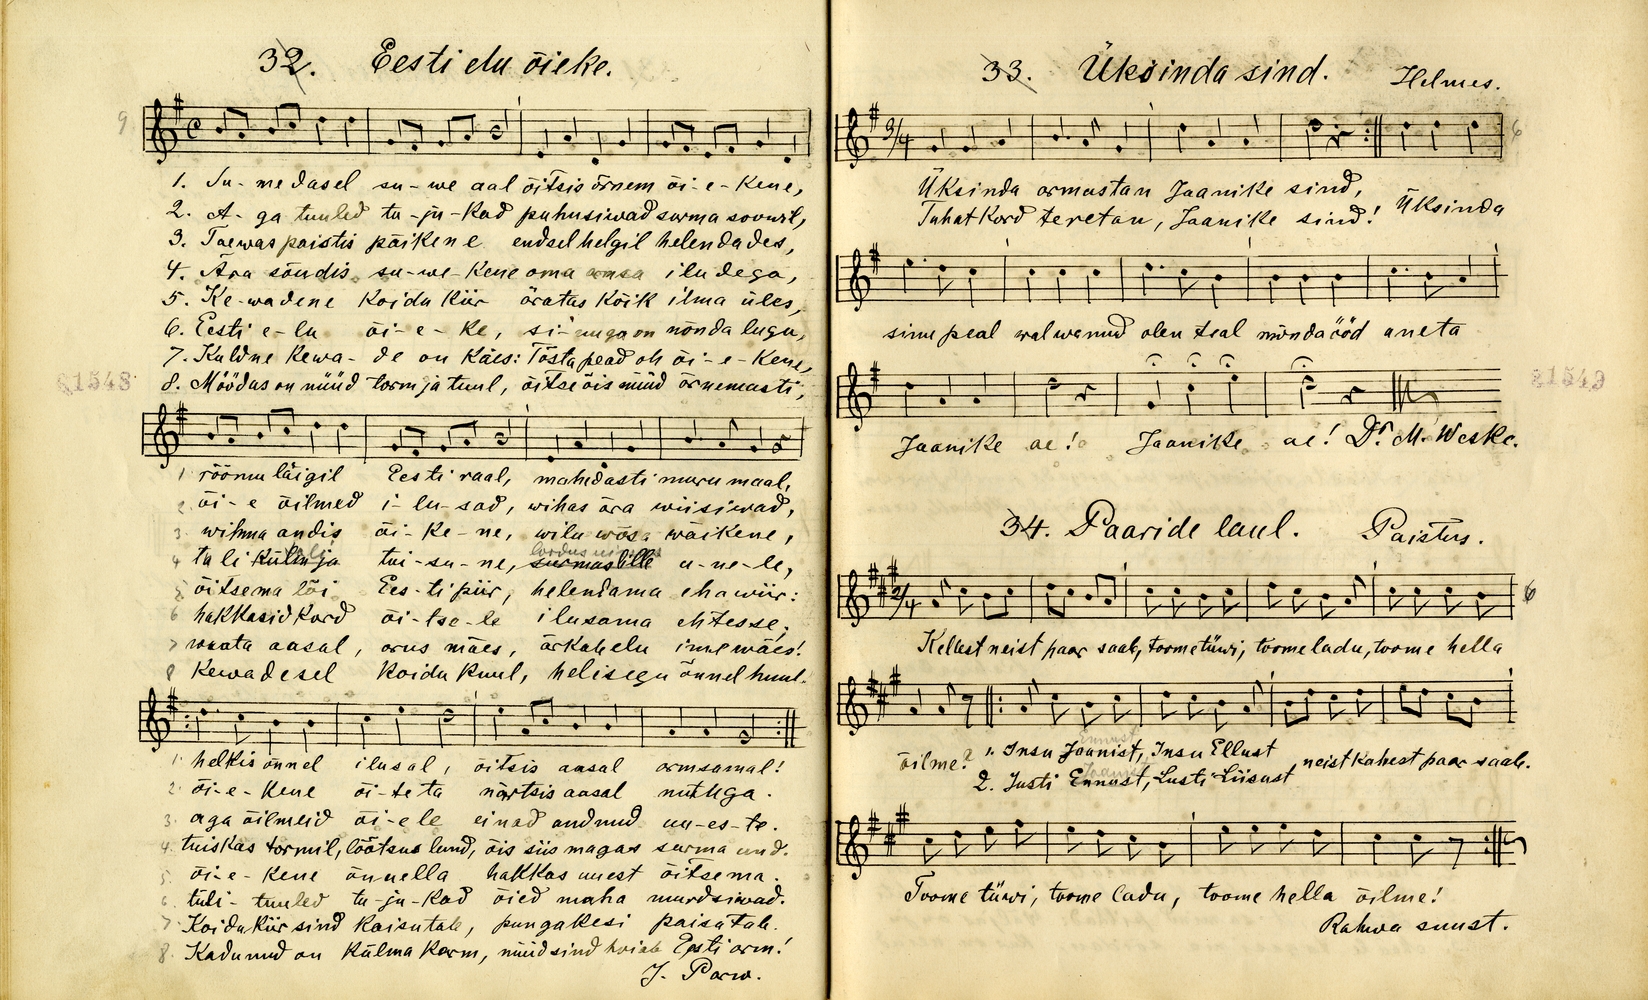 32. Eesti elu õieke.
9
1. Su-medasel su-we aal õitsis õrnem õi-e-kene,
2. A-ga tuuled tu-ju-kad puhusiwad surma soowil,
3. Taewas paistis päikene endsel helgil helendades,
4. Ära sõudis su-we-kene oma iludega,
5. Ke-wadene koidu kiir äratas kõik ilma üles,
6. Eesti e-lu õi-e-ke, on nõnda lugu,
7. Kuldne kewa-de on käes: Tõsta pead oh õi-e-kene,
8. Möödas on nüüd torm ja tuul, õitse õis nüüd õrnemasti,
§1548
1 rõõmu läigil Eesti raal, mahedasti muru maal,
2 õi-e õilmed i-lu-sad, wihas ära wiisiwad,
3. wihma andis õi-ke-ne, wilu wõsa-wäikene,
4 tali külm ja tui-su-ne, surmas lille u-ne-le,
5 õitsema lõi Ees-ti piir, helendama eha wiir:
6 hakkasid kord õi-tse-le ilusama ehtesse,
7 waata aasal, orus mäes, ärkab elu ime wäes!
8 Kewadesel koidu kuul, helisegu õnnel huul.
1. helkis õnnel ilusal, õitsis aasal armsamal!
2. õi-e-kene õi-te ta närtsis aasal nutuga.
3. aga õilmeid õi-ele einad andnud uu-es-te.
4. tuiskas tormil, lõõtsus lund, õis siis magas surma und.
5. õi-e-kene õnnella hakkas uuest õitsema.
6. tuli-tuuled tu-ju-kad õied maha murdsiwad.
7 Koidu kiir sind kaisutab, pungakesi paisutab.
8. Kadunud on külma karm, nüüd sind hoiab Eesti arm!
J. Parw.
33. Üksinda sind. Helmes.
6
Üksinda armastan Jaanike sind,
Tuhat kord teretan, Jaanike sind! Üksinda
sinu peal walwanud olen seal mõnda ööd aneta
§1549
Jaanike ae! Jaanike ae! Dr. M. Weske.
34. Paaride laul. Paistus.
6
Kellest neist paar saab, toome tüwi, toome ladu, toome hella
õilme? 1. Insu Joanist, Insu Ellust neist kahest paar saab.
2. Justi Ennust, Lusti Liisust
Toome tüwi, toome ladu, toome hella õilme!
Rahwa suust.